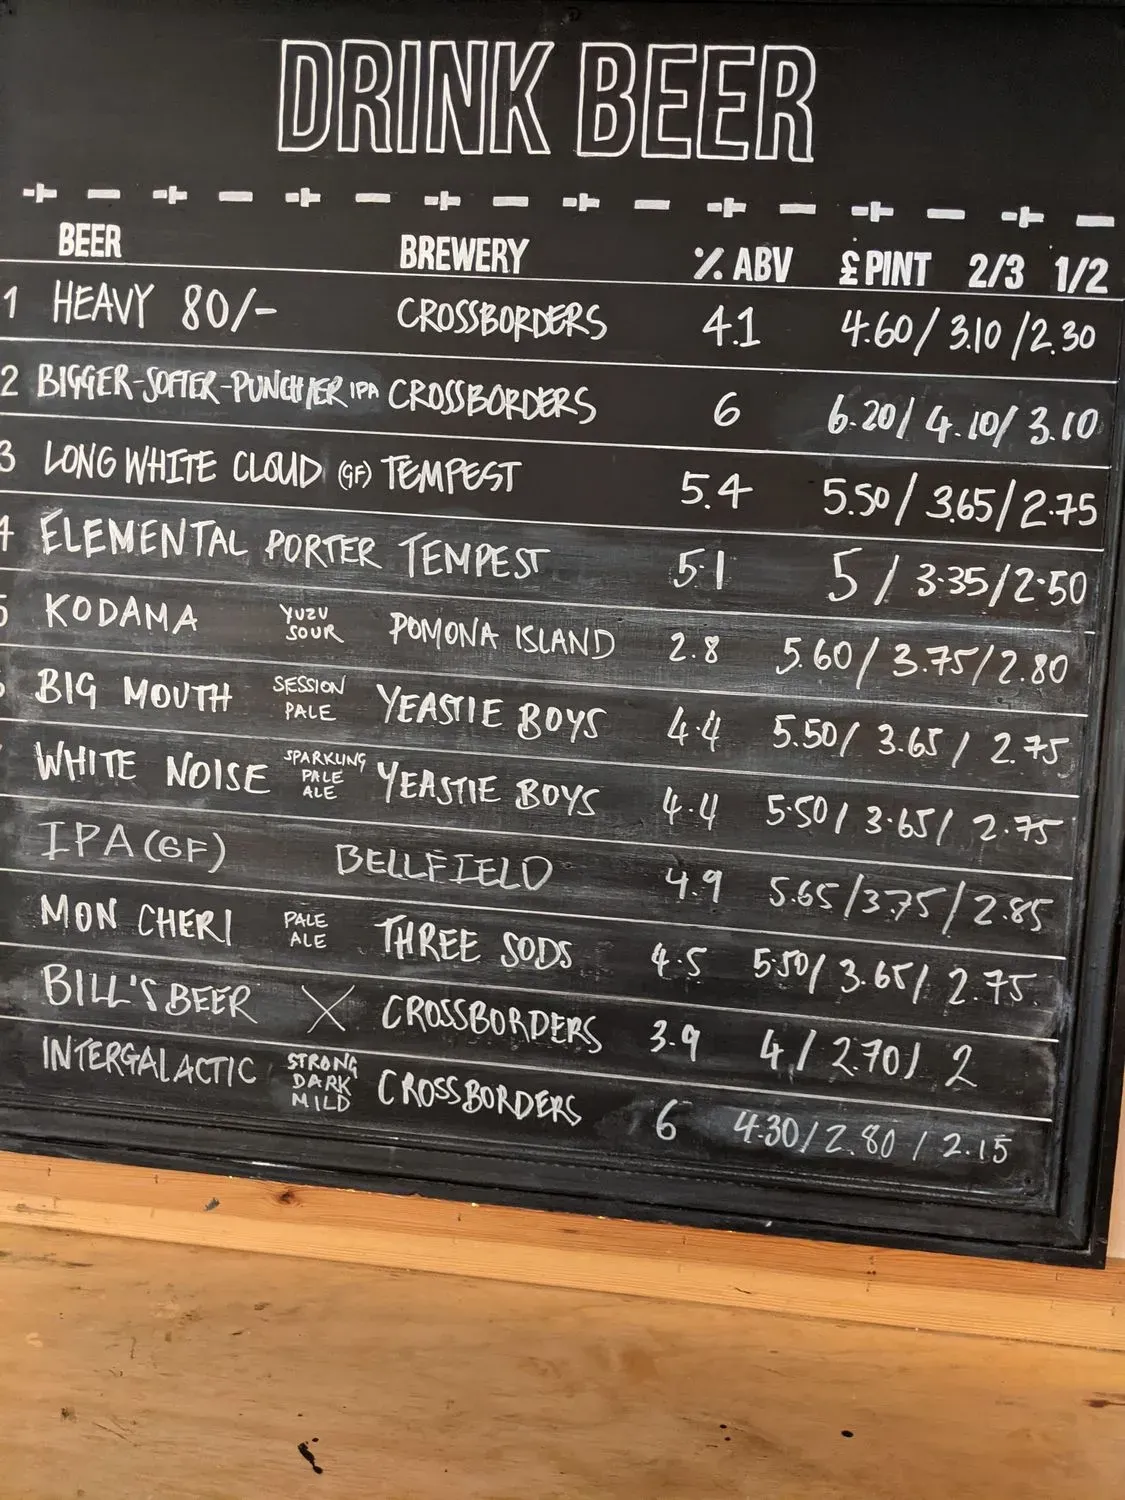 DRINK BEER
BEER BREWERY % ABV £ PINT 2/3 1/2
1 HEAVY 80/- CROSSBORDERS 4.1 4.60/ 3.10 /2.30
2 BIGGER-SOFTER-PUNCHIER IPA CROSSBORDERS 6 6.20/ 4.10/ 3.10
3 LONG WHITE CLOUD (GF) TEMPEST 5.4 5.50 / 3.65/2.75
4 ELEMENTAL PORTER TEMPEST 5.1 5 / 3.35/2.50
5 KODAMA YUZU SOUR POMONA ISLAND 2.8 5.60/ 3.75/2.80
BIG MOUTH SESSION PALE YEASTIE BOYS 4.4 5.50/ 3.65 / 2.75
WHITE NOISE SPARKLING PALE ALE YEASTIE BOYS 4.4 5.50/ 3.65/ 2.75
IPA (GF) BELLFIELD 4.9 5.65/3.75/2.85
MON CHERI PALE ALE THREE SODS 4.5 5.50/ 3.65/ 2.75
BILL'S BEER X CROSSBORDERS 3.9 4 / 2.70/ 2
INTERGALACTIC STRONG DARK MILD CROSSBORDERS 6 4.30/2.80 / 2.15